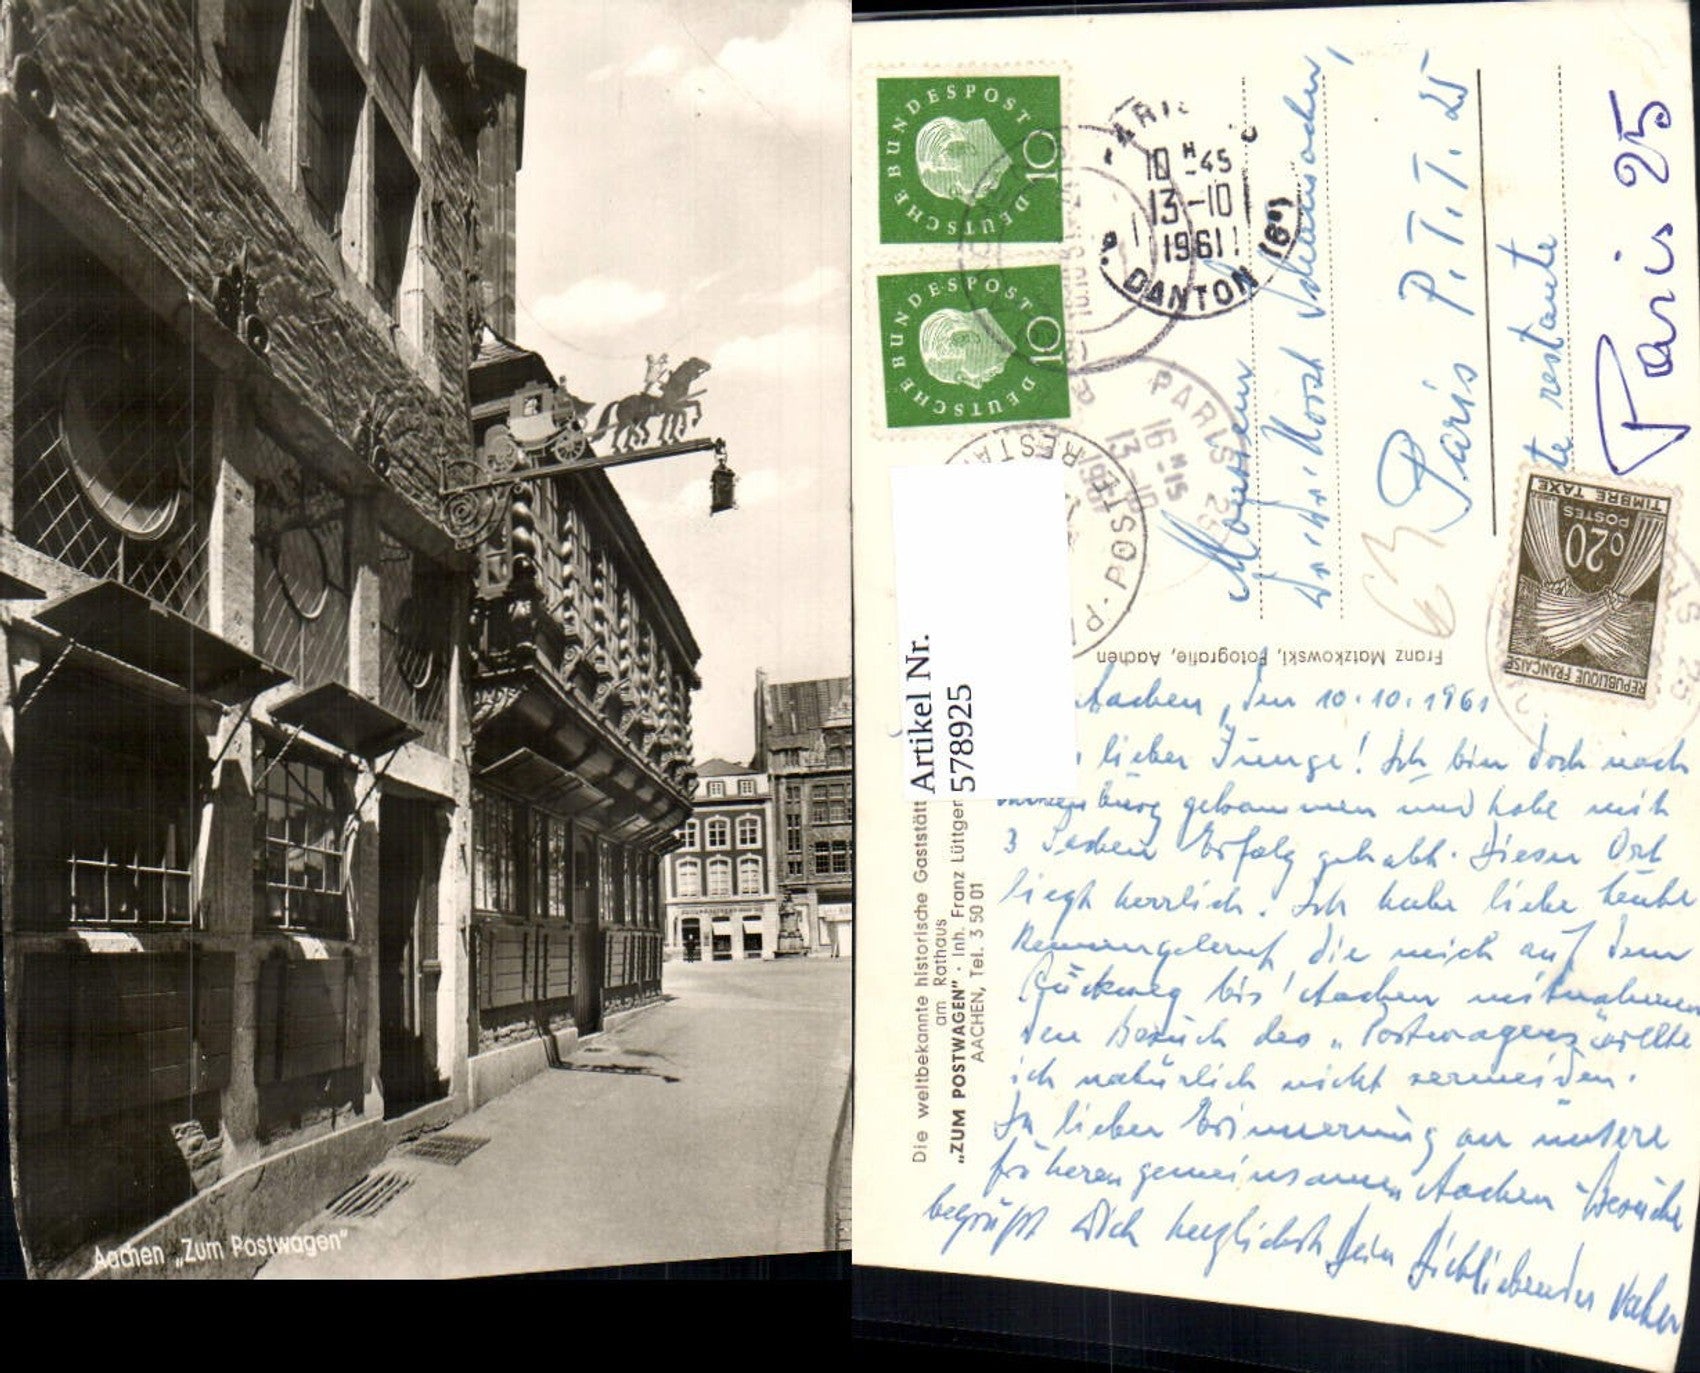 Aachen „Zum Postwagen"
DEUTSCHE BUNDESPOST
10
DEUTSCHE BUNDESPOST
10
10 H 45
13-10
1961
P. DANTON (6e)
PARIS 25
16 H 15
13-10
1961
POSTE RESTA
Monsieur
Paris P.T.T. 25
restante
Paris 25
TIMBRE TAXE
POSTES
0,20
REPUBLIQUE FRANÇAISE
Franz Matzkowski, Fotografie, Aachen
Artikel Nr.
578925
Die weltbekannte historische Gaststätt
am Rathaus
„ZUM POSTWAGEN" · Inh. Franz Lüttger
AACHEN, Tel. 3 50 01
Aachen, den 10.10.1961
lieber Junge! Ich bin doch nach
gekommen und habe mit
3 Erfolg gehabt. Dieser Ort
liegt herrlich. Ich habe liebe Leute
kennengelernt, die mich auf dem
Rückweg bis Aachen mitnahmen
den Besuch des „Postwagens" wollte
ich natürlich nicht vermeiden.
In lieber Erinnerung an unsere
früheren gemeinsamen Aachen-Besuche
begrüßt Dich herzlichst Dein Dichliebender Vater